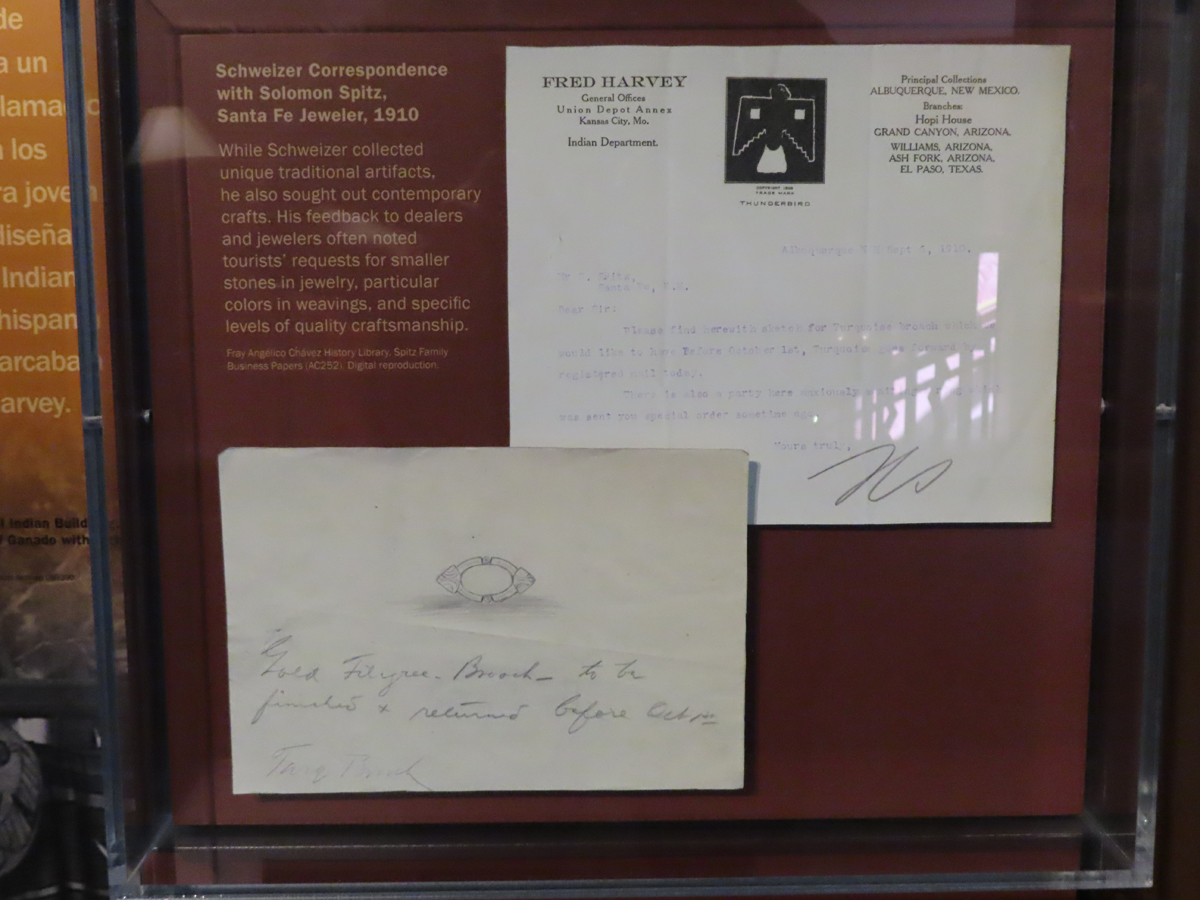 de
a un
lamado
los
ra joven
diseña
Indian
hispan
arcaba
arvey.
Indian Build
Ganado with
Schweizer Correspondence
with Solomon Spitz,
Santa Fe Jeweler, 1910
While Schweizer collected
unique traditional artifacts,
he also sought out contemporary
crafts. His feedback to dealers
and jewelers often noted
tourists’ requests for smaller
stones in jewelry, particular
colors in weavings, and specific
levels of quality craftsmanship.
Fray Angélico Chávez History Library, Spitz Family
Business Papers (AC252). Digital reproduction.
FRED HARVEY
General Offices
Union Depot Annex
Kansas City, Mo.
Indian Department.
COPYRIGHT 1909
TRADE MARK
THUNDERBIRD
Principal Collections
ALBUQUERQUE, NEW MEXICO.
Branches:
Hopi House
GRAND CANYON, ARIZONA.
WILLIAMS, ARIZONA.
ASH FORK, ARIZONA.
EL PASO, TEXAS.
Albuquerque Sept 6, 1910.
Mr S. Spitz,
Santa Fe, N.M.
Dear Sir:
Please find herewith sketch for Turquoise Brooch which
would like to have Before October 1st, Turquoise goes forward by
registered mail today.
There is also a party here anxiously
was sent you special order sometime ago.
Yours truly,
HS
Gold Filigree. Brooch – to be
finished & returned before Oct 1st
Turq Brooch